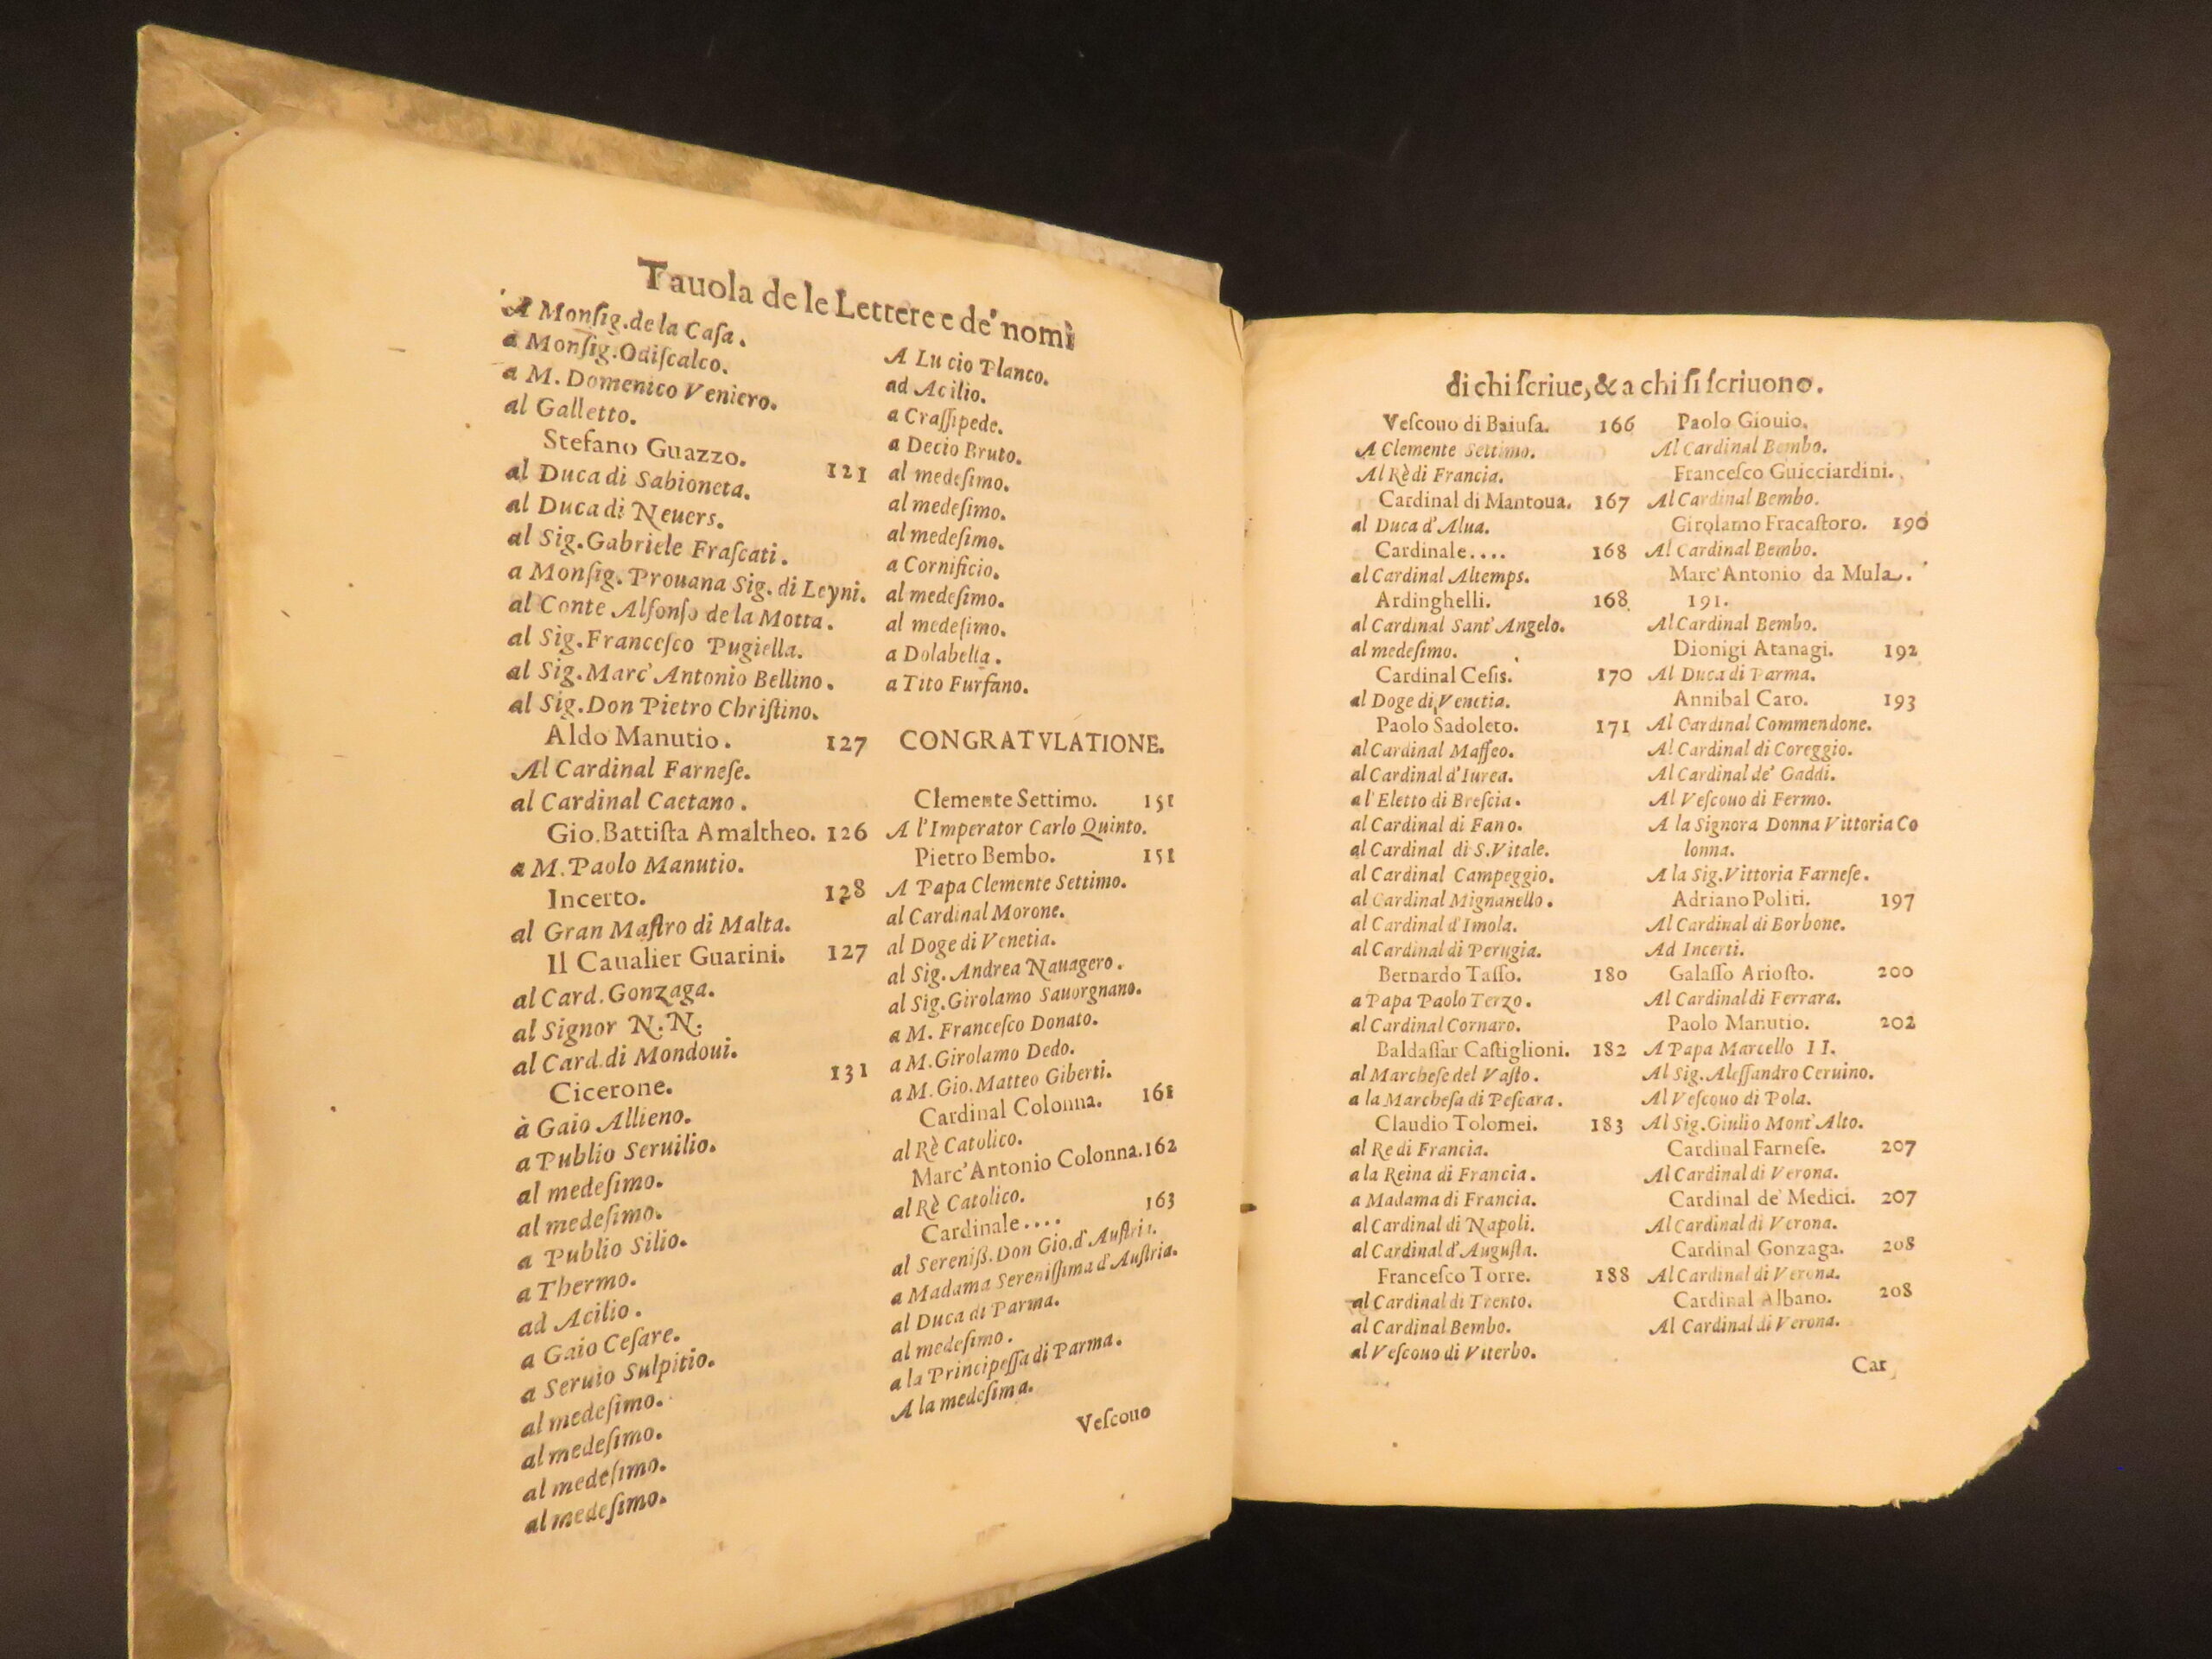 Tauola de le Lettere e de' nomi
A Monſig. de la Caſa.
a Monſig. Odiſcalco.
a M. Domenico Veniero.
al Galletto.
Stefano Guazzo. 121
al Duca di Sabioneta.
al Duca di Neuers.
al Sig. Gabriele Fraſcati.
a Monſig. Prouana Sig. di Leyni.
al Conte Alfonſo de la Motta.
al Sig. Franceſco Pugiella.
al Sig. Marc' Antonio Bellino.
al Sig. Don Pietro Chriſtino.
Aldo Manutio. 127
Al Cardinal Farneſe.
al Cardinal Caetano.
Gio. Battiſta Amaltheo. 126
a M. Paolo Manutio.
Incerto. 128
al Gran Maſtro di Malta.
Il Caualier Guarini. 127
al Card. Gonzaga.
al Signor N. N.
al Card. di Mondoui.
Cicerone. 131
à Gaio Allieno.
a Publio Seruilio.
al medeſimo.
al medeſimo.
a Publio Silio.
a Thermo.
ad Acilio.
a Gaio Ceſare.
a Seruio Sulpitio.
al medeſimo.
al medeſimo.
al medeſimo.
al medeſimo.
A Lu cio Planco.
ad Acilio.
a Craſſipede.
a Decio Bruto.
al medeſimo.
al medeſimo.
al medeſimo.
a Cornificio.
al medeſimo.
al medeſimo.
a Dolabella.
a Tito Furfano.
CONGRATVLATIONE.
Clemente Settimo. 151
A l'Imperator Carlo Quinto.
Pietro Bembo. 151
A Papa Clemente Settimo.
al Cardinal Morone.
al Doge di Venetia.
al Sig. Andrea Nauagero.
al Sig. Girolamo Sauorgnano.
a M. Franceſco Donato.
a M. Girolamo Dedo.
a M. Gio. Matteo Giberti.
Cardinal Colonna. 161
al Rè Catolico.
Marc' Antonio Colonna. 162
al Rè Catolico.
Cardinale.... 163
al Sereniß. Don Gio. d' Auſtria.
a Madama Sereniſſima d' Auſtria.
al Duca di Parma.
al medeſimo.
a la Principeſſa di Parma.
A la medeſima.
Veſcouo
di chi ſcriue, & a chi ſi ſcriuono.
Veſcouo di Baiuſa. 166
A Clemente Settimo.
Al Rè di Francia.
Cardinal di Mantoua. 167
al Duca d' Alua.
Cardinale.... 168
al Cardinal Altemps.
Ardinghelli. 168
al Cardinal Sant' Angelo.
al medeſimo.
Cardinal Ceſis. 170
al Doge di Venetia.
Paolo Sadoleto. 171
al Cardinal Maffeo.
al Cardinal d' Iurea.
a l' Eletto di Breſcia.
al Cardinal di Fano.
al Cardinal di S. Vitale.
al Cardinal Campeggio.
al Cardinal Mignanello.
al Cardinal d' Imola.
al Cardinal di Perugia.
Bernardo Taſſo. 180
a Papa Paolo Terzo.
al Cardinal Cornaro.
Baldaſſar Caſtiglioni. 182
al Marcheſe del Vaſto.
a la Marcheſa di Peſcara.
Claudio Tolomei. 183
al Re di Francia.
a la Reina di Francia.
a Madama di Francia.
al Cardinal di Napoli.
al Cardinal d' Auguſta.
Franceſco Torre. 188
al Cardinal di Trento.
al Cardinal Bembo.
al Veſcouo di Viterbo.
Paolo Giouio.
Al Cardinal Bembo.
Franceſco Guicciardini.
Al Cardinal Bembo.
Girolamo Fracaſtoro. 190
Al Cardinal Bembo.
Marc' Antonio da Mula.
191.
Al Cardinal Bembo.
Dionigi Atanagi. 192
Al Duca di Parma.
Annibal Caro. 193
Al Cardinal Commendone.
Al Cardinal di Coreggio.
Al Cardinal de' Gaddi.
Al Veſcouo di Fermo.
A la Signora Donna Vittoria Co
lonna.
A la Sig. Vittoria Farneſe.
Adriano Politi. 197
Al Cardinal di Borbone.
Ad Incerti.
Galaſſo Arioſto. 200
Al Cardinal di Ferrara.
Paolo Manutio. 202
A Papa Marcello II.
Al Sig. Aleſſandro Ceruino.
Al Veſcouo di Pola.
Al Sig. Giulio Mont' Alto.
Cardinal Farneſe. 207
Al Cardinal di Verona.
Cardinal de' Medici. 207
Al Cardinal di Verona.
Cardinal Gonzaga. 208
Al Cardinal di Verona.
Cardinal Albano. 208
Al Cardinal di Verona.
Car